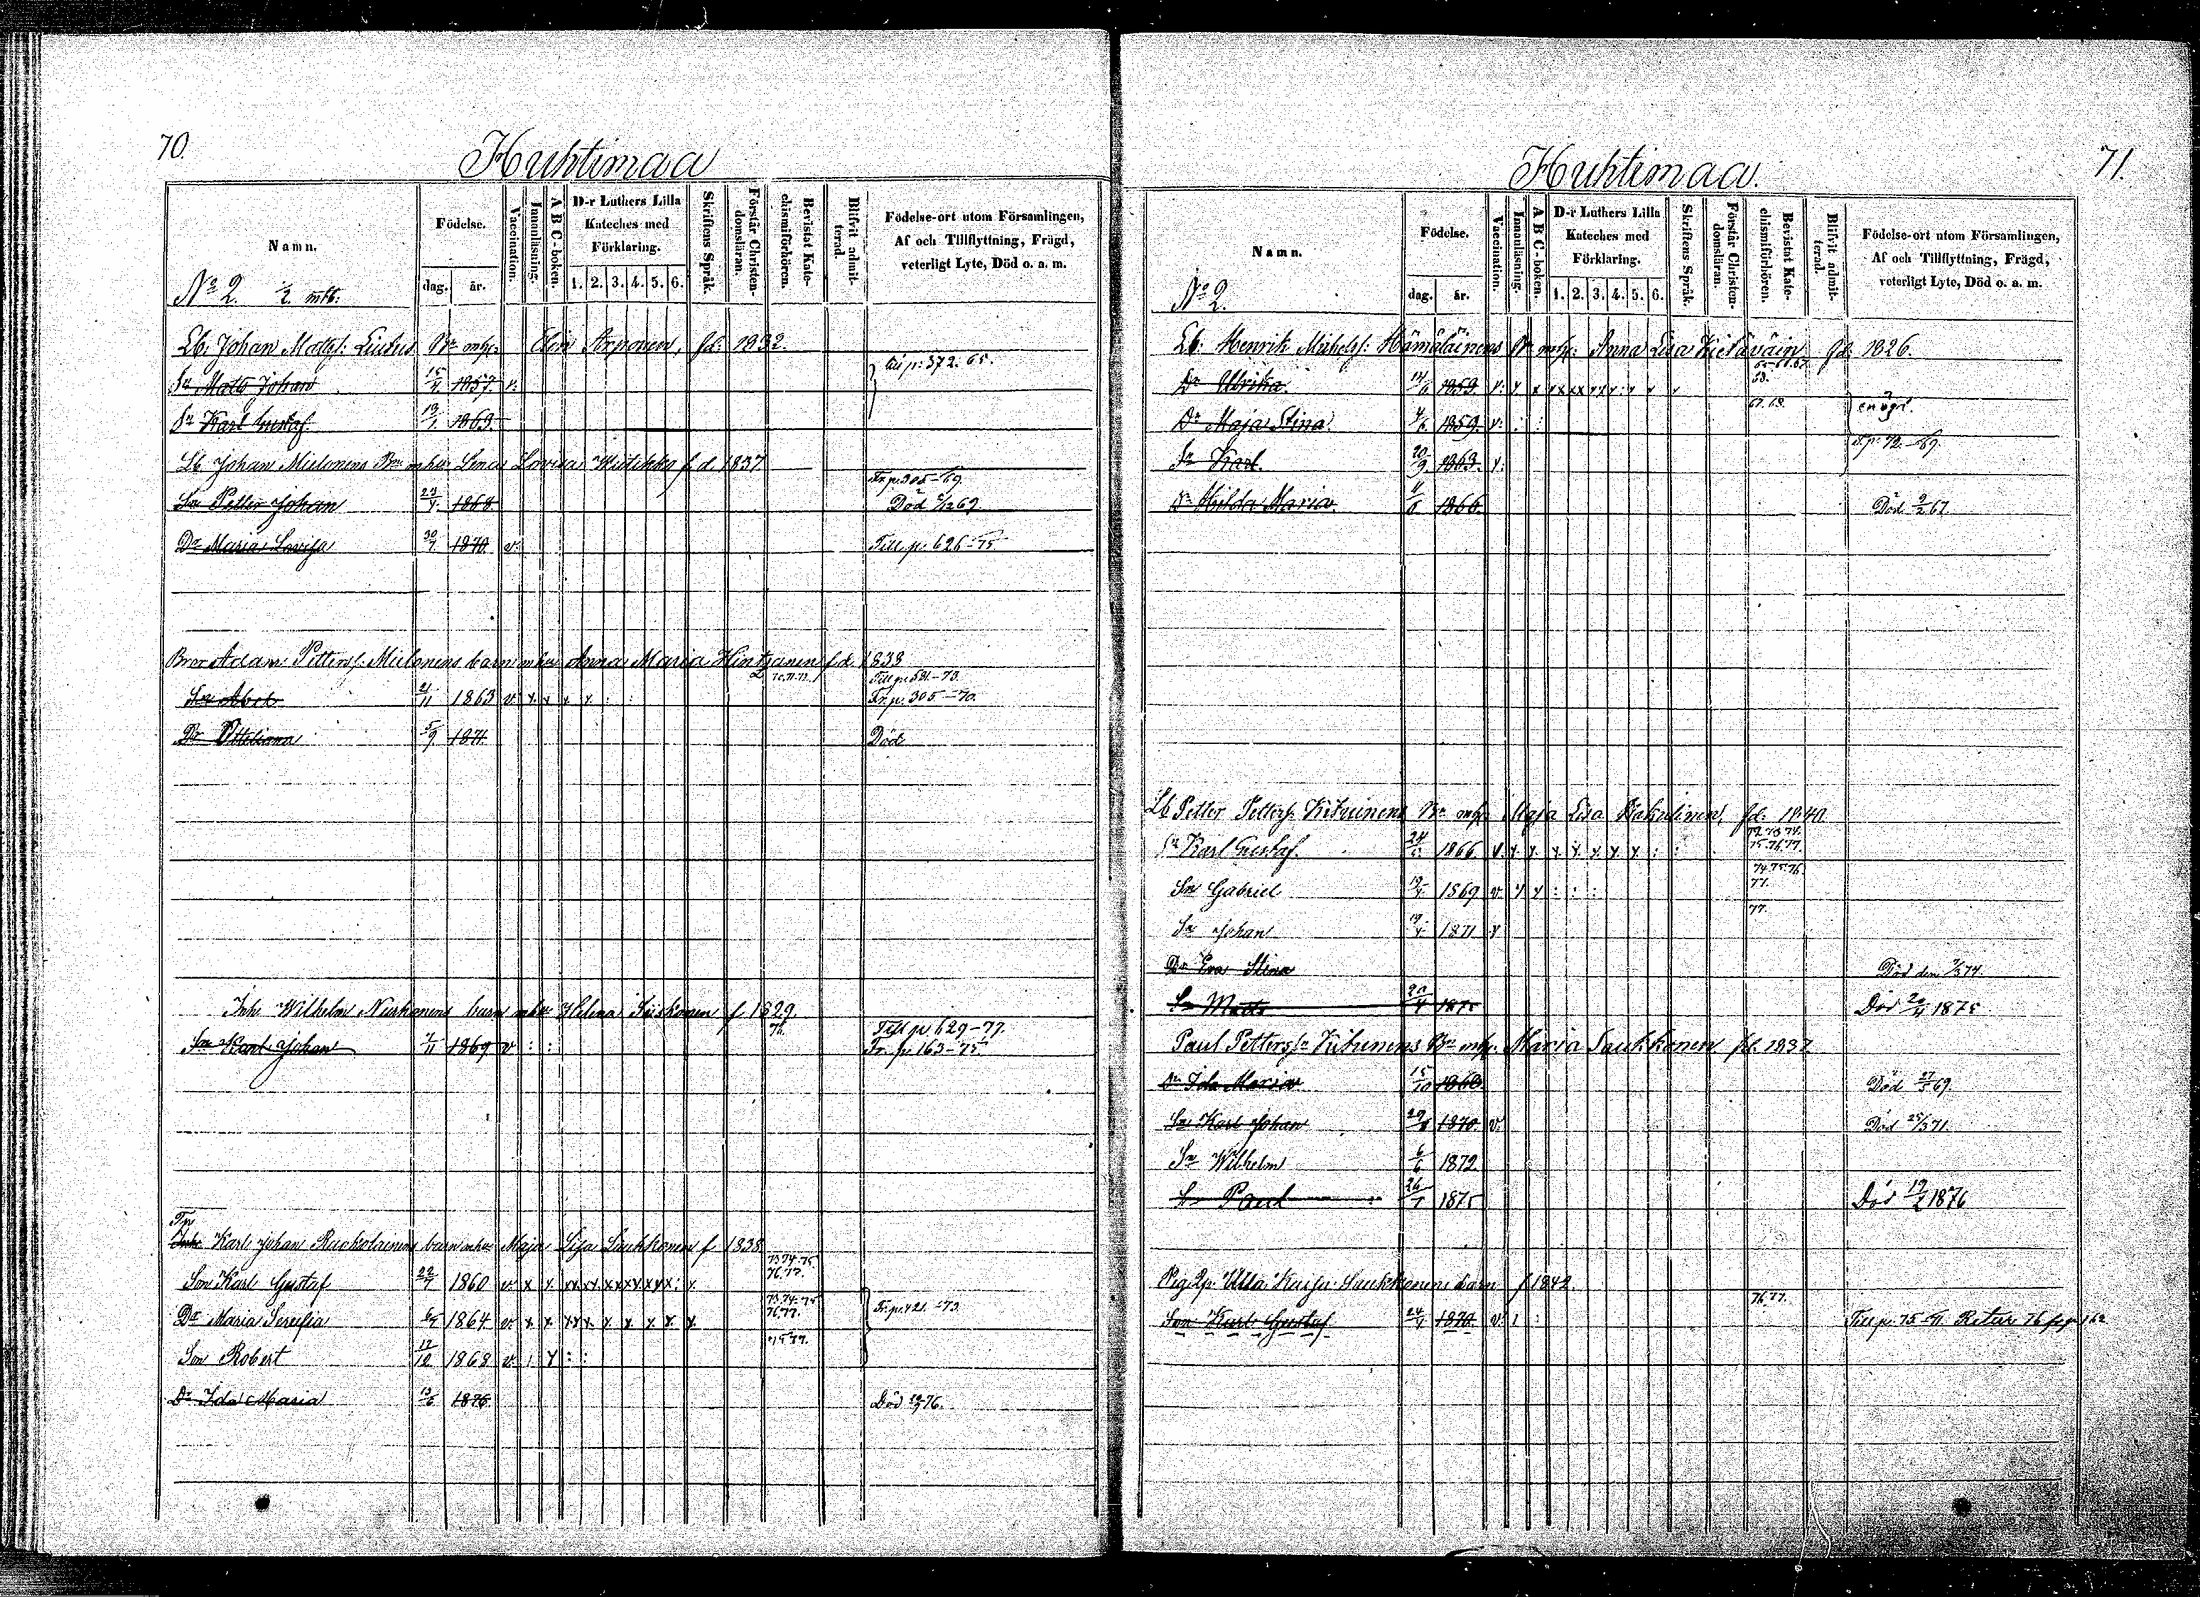 70.
Huhtimaa
Namn.
Födelse.
dag. år.
Vaccination.
Innanläsning.
A B C-boken.
D-r Luthers Lilla
Kateches med
Förklaring.
1. 2. 3. 4. 5. 6.
Skriftens Språk.
Förstår Christen-
domsläran.
Bevistat Kate-
chismiförhören.
Blifvit admit-
terad.
Födelse-ort utom Församlingen,
Af och Tillflyttning, Frägd,
veterligt Lyte, Död o. a. m.
No 2. 1/2 mtl:
Lb. Johan Matts: Bn mhu Elin Arponen, fd: 1832.
p: 372. 65.
Sn Matts Johan 15/4 1857. v.
Sn Karl Gustaf 13/1 1863.
Lb Johan Mielonens Bn mhu Lena Lovisa f d 1837
Fr p. 305-69.
Sn Petter Johan 1868 Död 69.
Dr Maria Lovisa 30/7 1870. v. Till p. 626-75
Bror Adam Petters: Mielonens barn mhu Anna Maria Hintzanen f d 1838
70.71.72. Till p. 581.-73.
Sn Abel 21/11 1863 v. x x x x : : Fr. p. 305-70.
Dr Ottiliana 5/9 1871. Död
Inh. Wilhelm Nuskonens barn mhu Helena f 1829
76. Till p 629-77.
Sn Karl Johan 7/11 1869 v : : Fr. p. 163-75
Tp
Inh Karl Johan Ruokolainens barn mhu Maja Lisa Saukkonen f 1838
73.74.75.
76.77.
Son Karl Gustaf 22/7 1860 v x x xx xx xxxx xxx: x
73.74.75
76.77.
Dr Maria Serefia 6/5 1864 v x x xx x x x x x x Fr. p. 421.-73.
75.77.
Son Robert 17/12 1868 v. : x : :
Dr Ida Maria 13/6 1876. Död 76.
71.
Huhtimaa.
Namn.
Födelse.
dag. år.
Vaccination.
Innanläsning.
A B C-boken.
D-r Luthers Lilla
Kateches med
Förklaring.
1. 2. 3. 4. 5. 6.
Skriftens Språk.
Förstår Christen-
domsläran.
Bevistat Kate-
chismiförhören.
Blifvit admit-
terad.
Födelse-ort utom Församlingen,
Af och Tillflyttning, Frägd,
veterligt Lyte, Död o. a. m.
No 2.
Lb. Henrik Michels: Hämäläinens Bn mhu: Anna Lisa Kietäväin, fd: 1826.
68.
Dr Ulrika 1859. v: x x xx xx xx x: x x x
67.68.
Dr Maja Stina 4/6 1859. v. : :
p. 72.-69.
Sn Karl. 20/9 1863. v:
Dr Hilda Maria. 1866. Död 9/2 67.
Lb Petter Petters: Kitunens Bn mhu Maja Lisa Hakulinen, fd: 1840.
72.73.74.
75.76.77.
Sn Karl Gustaf. 1866. v. x x. x. x. x. x. x. : :
74.75.76.
77.
Sn Gabriel 1869 v x x : : :
77.
Sn Johan 1871 v
Dr Eva Stina Död den 7/3 74.
Sn Matts 20/4 1875 Död 20/4 1875
Paul Petters sn Kitunens Bn mhu: Maria Saukkonen fd. 1837.
Dr Ida Maria 15/10 1868 Död 27/5 69.
Sn Karl Johan 1870. v. Död 25/3 71.
Sn Wilhelm 6/6 1872
Sn Paul 26/7 1875 Död 1876
Pig Ulla Kaisa Saukkonens barn f 1842.
76.77.
Son Karl Gustaf 24/4 1870. v. : : Till p. 75-71. Retur 76 fr p 162